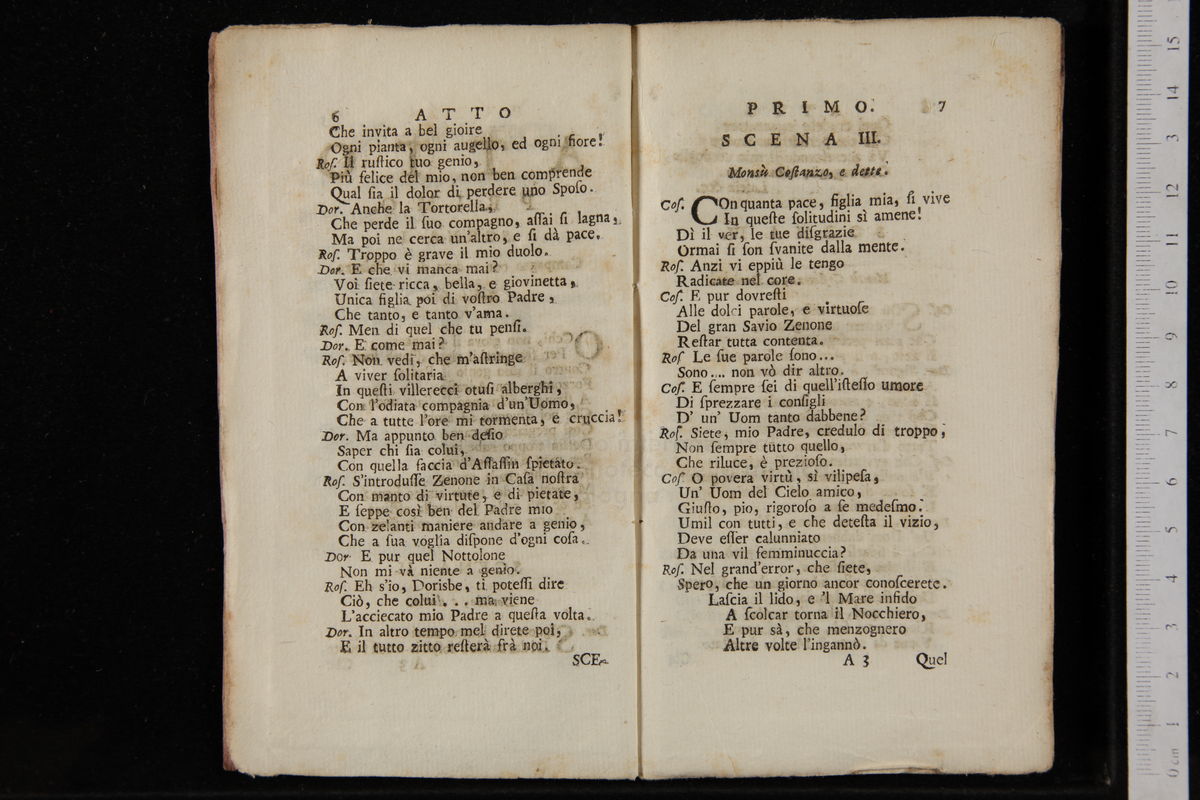 6 ATTO
Che invita a bel gioire
Ogni pianta, ogni augello, ed ogni fiore!
Roſ. Il ruſtico tuo genio,
Più felice del mio, non ben comprende
Qual ſia il dolor di perdere uno Spoſo.
Dor. Anche la Tortorella,
Che perde il ſuo compagno, aſſai ſi lagna,
Ma poi ne cerca un'altro, e ſi dà pace.
Roſ. Troppo è grave il mio duolo.
Dor. E che vi manca mai?
Voi ſiete ricca, bella, e giovinetta,
Unica figlia poi di voſtro Padre,
Che tanto, e tanto v'ama.
Roſ. Men di quel che tu penſi.
Dor. E come mai?
Roſ. Non vedi, che m'aſtringe
A viver ſolitaria
In queſti villerecci otuſi alberghi,
Con l'odiata compagnia d'un'Uomo,
Che a tutte l'ore mi tormenta, e cruccia!
Dor. Ma appunto ben deſio
Saper chi ſia colui,
Con quella faccia d'Aſſaſſin ſpietato.
Roſ. S'introduſſe Zenone in Caſa noſtra
Con manto di virtute, e di pietate,
E ſeppe così ben del Padre mio
Con zelanti maniere andare a genio,
Che a ſua voglia diſpone d'ogni coſa.
Dor E pur quel Nottolone
Non mi và niente a genio.
Roſ. Eh s'io, Dorisbe, ti poteſſi dire
Ciò, che colui . . . ma viene
L'acciecato mio Padre a queſta volta.
Dor. In altro tempo mel direte poi,
E il tutto zitto reſterà frà noi.
SCE-
PRIMO. 7
SCENA III.
Monsù Coſtanzo, e dette.
Coſ. COn quanta pace, figlia mia, ſi vive
In queſte ſolitudini sì amene!
Dì il ver, le tue diſgrazie
Ormai ſi ſon ſvanite dalla mente.
Roſ. Anzi vi eppiù le tengo
Radicate nel core.
Coſ. E pur dovreſti
Alle dolci parole, e virtuoſe
Del gran Savio Zenone
Reſtar tutta contenta.
Roſ Le ſue parole ſono...
Sono.... non vò dir altro.
Coſ. E ſempre ſei di quell'iſteſſo umore
Di ſprezzare i conſigli
D' un' Uom tanto dabbene?
Roſ. Siete, mio Padre, credulo di troppo,
Non ſempre tutto quello,
Che riluce, è prezioſo.
Coſ O povera virtù, sì vilipeſa,
Un' Uom del Cielo amico,
Giuſto, pio, rigoroſo a ſe medeſmo.
Umil con tutti, e che deteſta il vizio,
Deve eſſer calunniato
Da una vil femminuccia?
Roſ. Nel grand'error, che ſiete,
Spero, che un giorno ancor conoſcerete.
Laſcia il lido, e 'l Mare infido
A ſcolcar torna il Nocchiero,
E pur sà, che menzognero
Altre volte l'ingannò.
A 3 Quel
15
14
13
12
11
10
9
8
7
6
5
4
3
2
1
0 cm